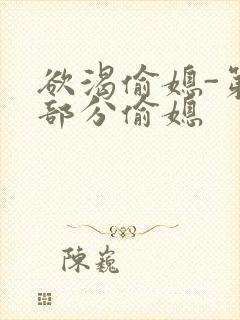 欲渴偷媳-第
部分偷媳
陳巍